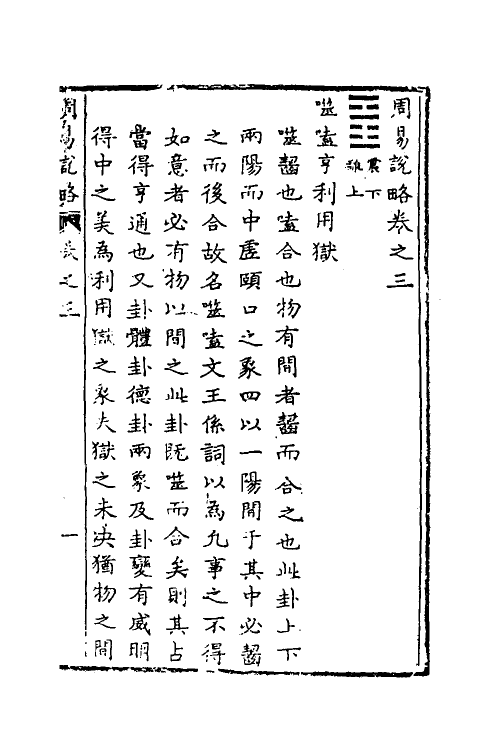 周易說略卷之三
震下
離上
噬嗑亨利用獄
噬齧也嗑合也物有間者齧而合之也此卦上下
兩陽而中虛頤口之象四以一陽間于其中必齧
之而後合故名噬嗑文王係詞以為凡事之不得
如意者必有物以間之此卦旣噬而合矣則其占
當得亨通也又卦體卦德卦兩象及卦變有威明
得中之美為利用獄之象夫獄之未決猶物之間
周易說略 卷之三 一